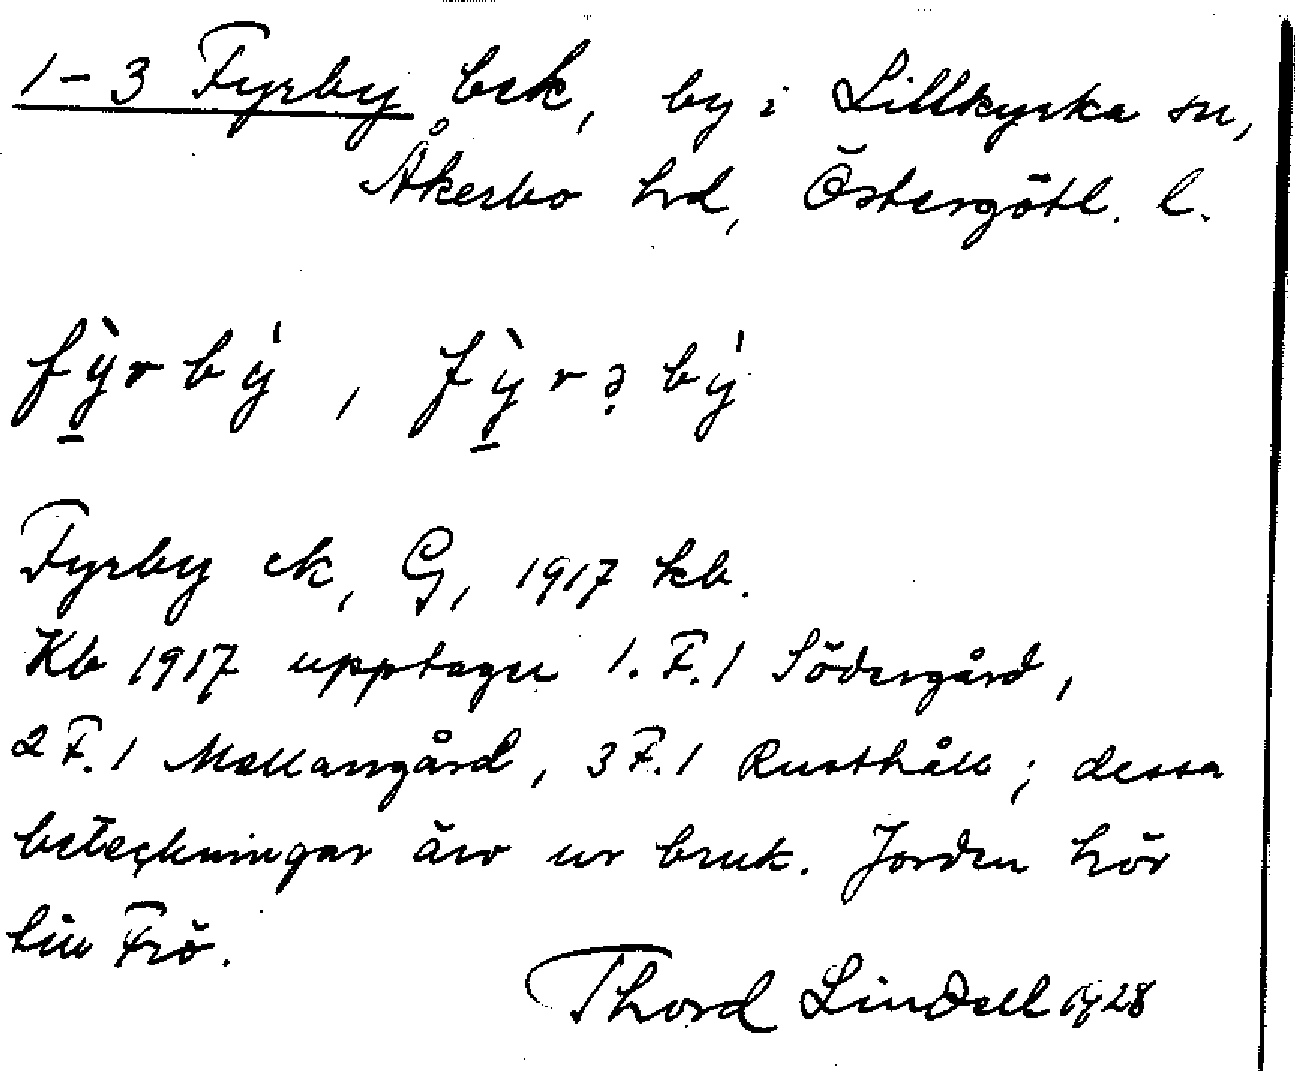 1-3 Fyrby bck, by i Lillkyrka sn,
Åkerbo hd, Östergötl. l.
fỳrbý, fỳrəbý
Fyrby ck, G, 1917 kb.
Kb 1917 upptager 1. F. 1 Södergård,
2 F. 1 Mellangård, 3 F. 1 Rusthåll; dessa
beteckningar äro ur bruk. Jorden hör
till Frö.
Thord Lindell 1928